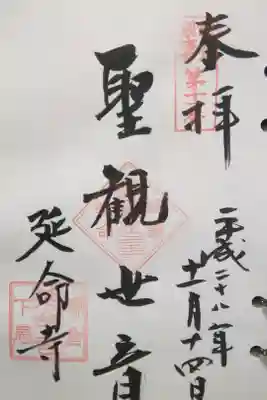 奉拝
平成二十八年
十一月十四日
聖観世音
延命寺